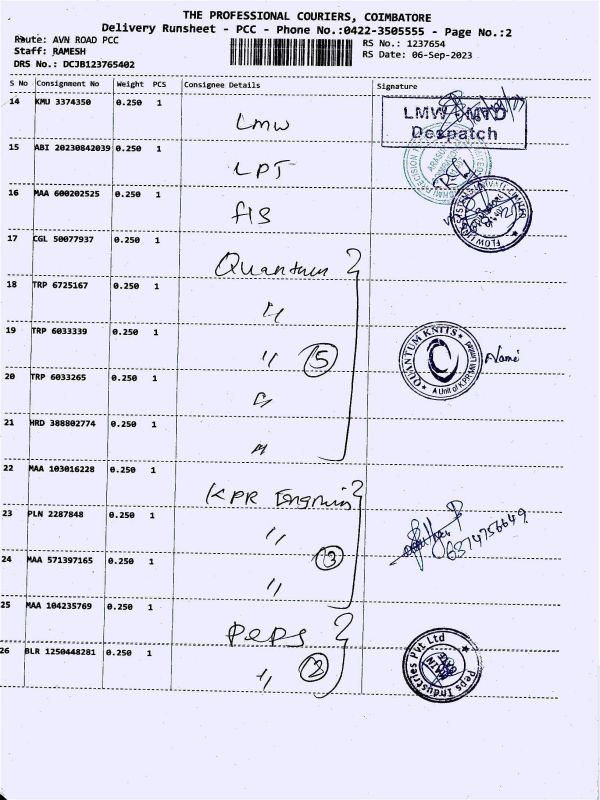 THE PROFESSIONAL COURIERS, COIMBATORE
Delivery Runsheet - PCC - Phone No.:0422-3505555 - Page No.:2
Route: AVN ROAD PCC
RS No.: 1237654
Staff: RAMESH
RS Date: 06-Sep-2023
DRS No.: DCJB123765402
S No Consignment No Weight PCS Consignee Details Signature
14 KMU 3374350 0.250 1 LMW
LMW - MTD
Despatch
15 ABI 20230842039 0.250 1 LPT
16 MAA 600202525 0.250 1 FIS
17 CGL 50077937 0.250 1 Quantum
18 TRP 6725167 0.250 1 "
19 TRP 6033339 0.250 1 " 5
QUANTUM KNITS
A Unit of KPR Mill Limited
20 TRP 6033265 0.250 1 "
21 HRD 388802774 0.250 1 "
22 MAA 103016228 0.250 1
KPR
23 PLN 2287848 0.250 1 "
6374756649
24 MAA 571397165 0.250 1 " 3
25 MAA 104235769 0.250 1 Peps
26 BLR 1250448281 0.250 1 " 2
Peps Industries Pvt Ltd